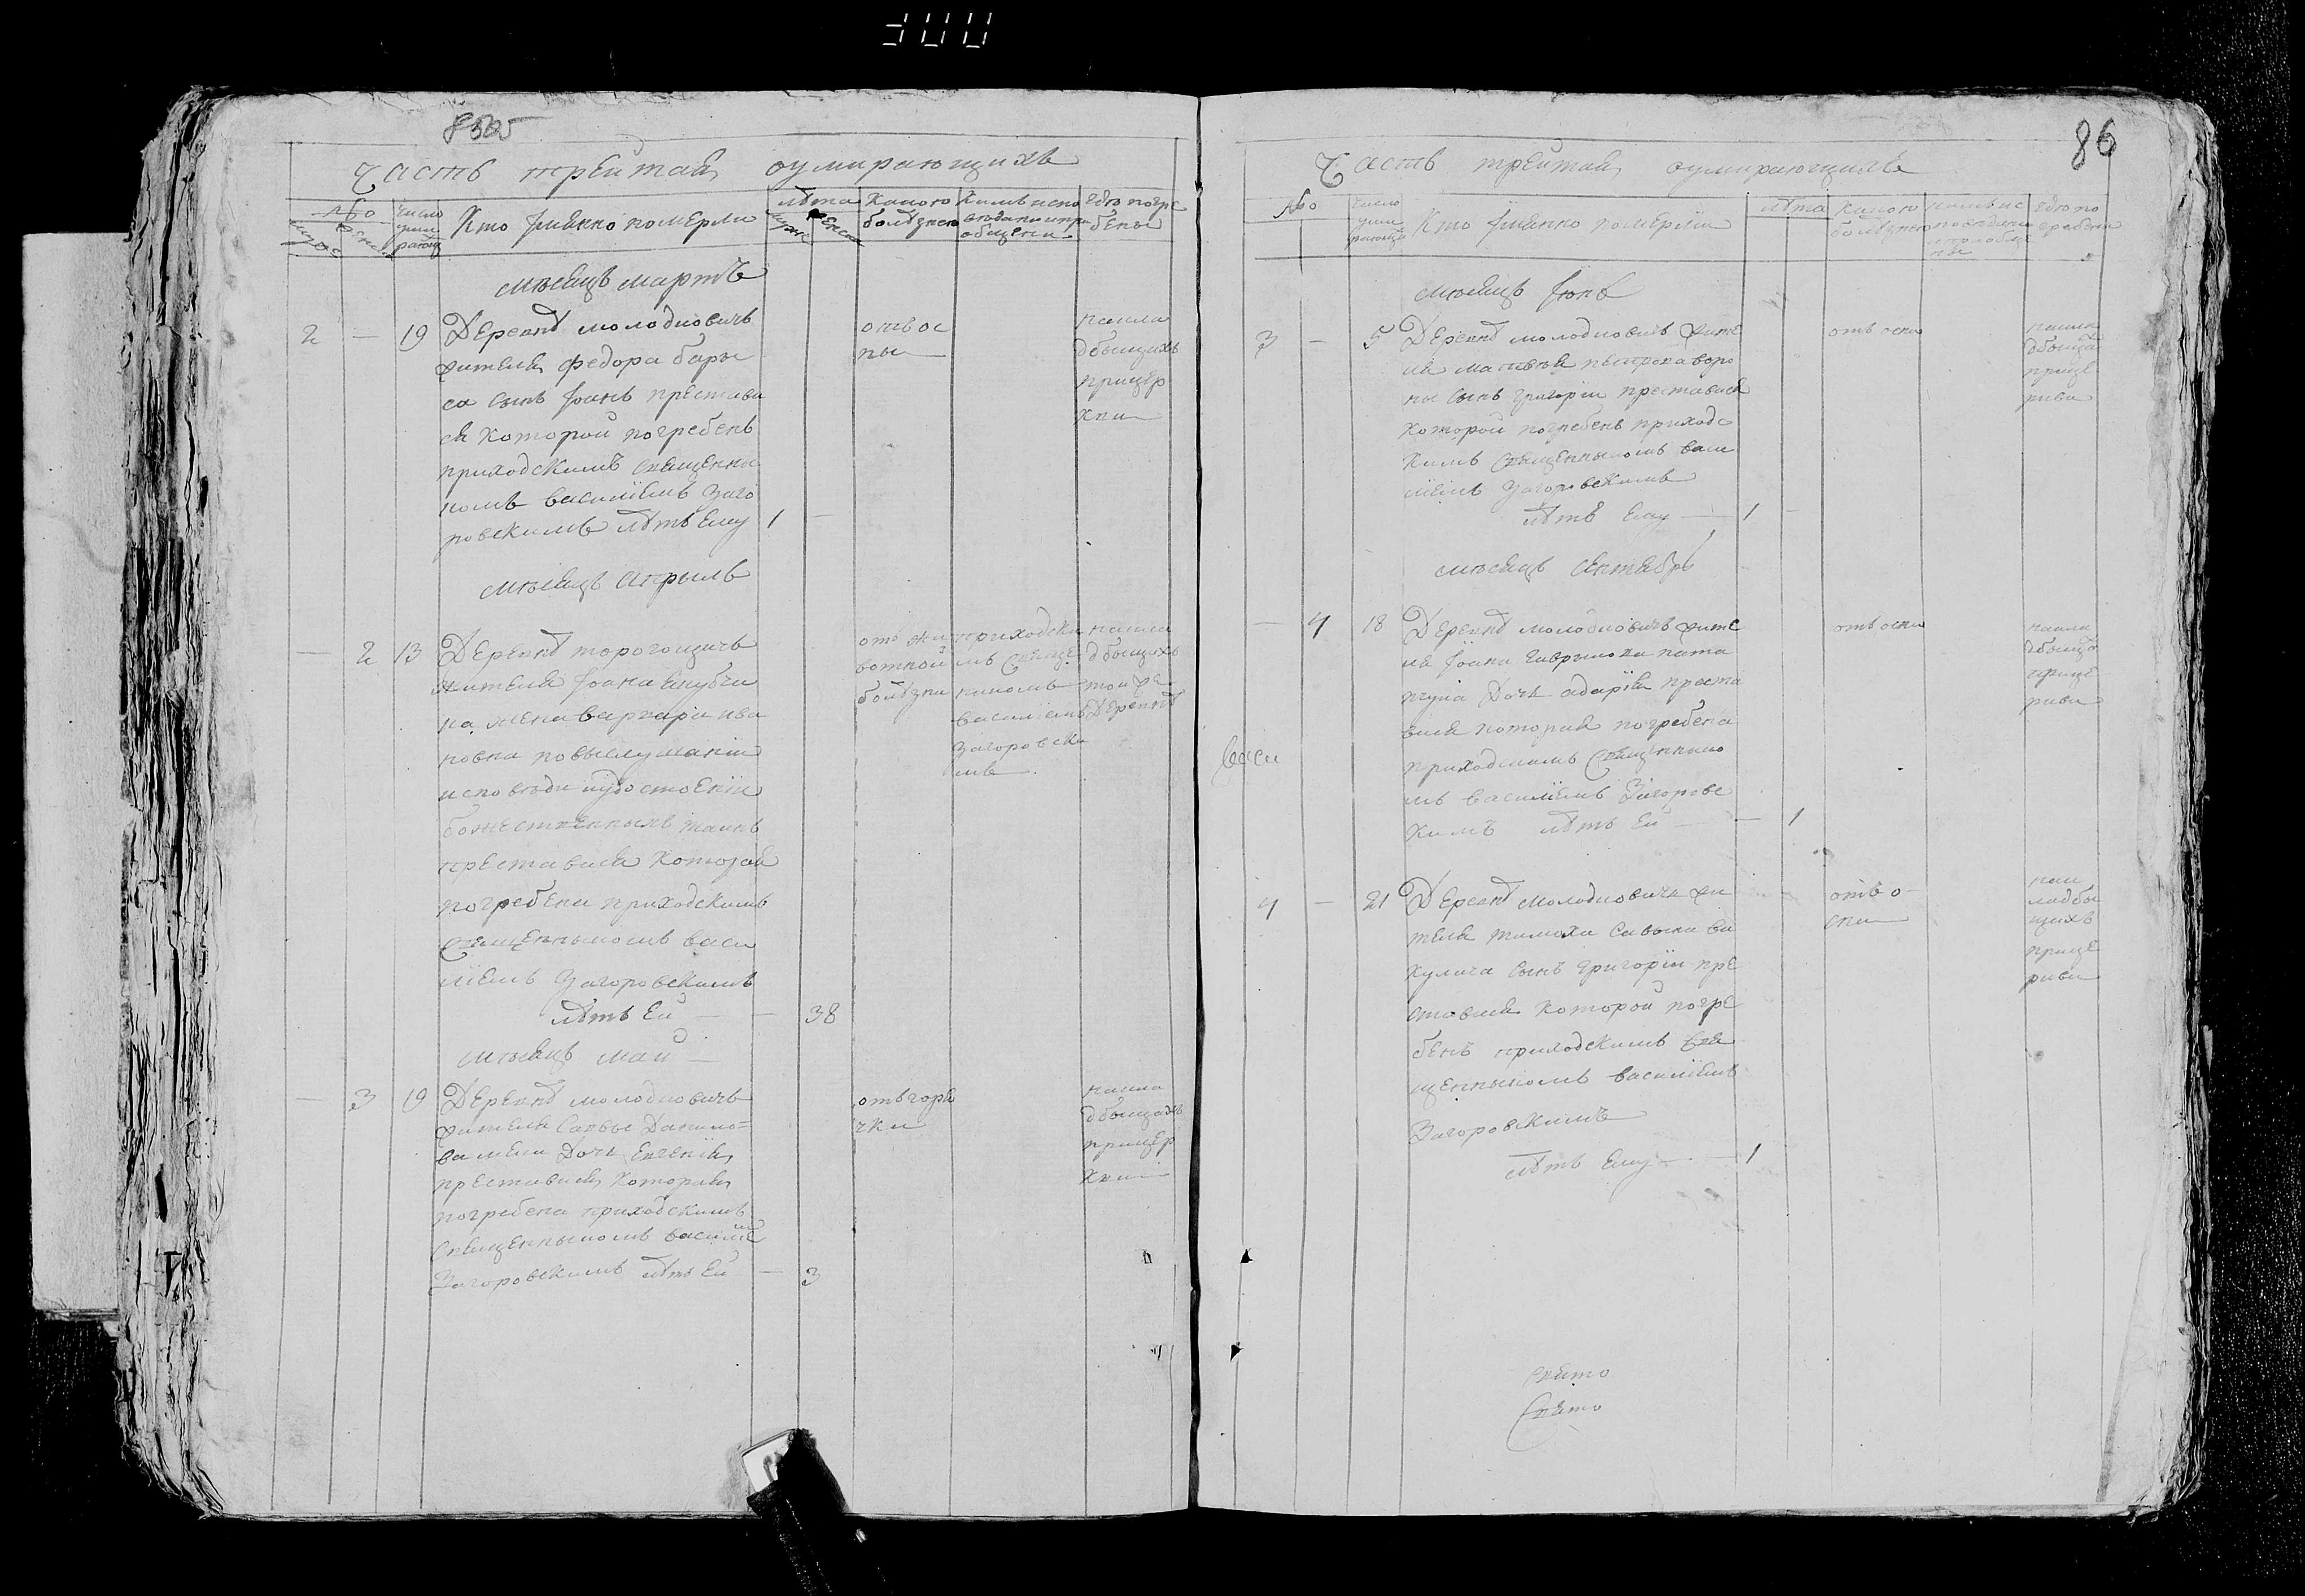 300
8505
часть третая оумирающихъ
No
число умирающ
Кто имянно померли
лѣта
Какою болѣзнею
Кимъ исповѣданы и приобщены
гдѣ погребены
мѣсяцъ мартъ
2 — 19 Деревнѣ молодковичъ
жителя федора бары
са сынъ Iоанъ престави
ся которой погребенъ
приходскимъ священни
комъ василiемъ Заго
ровскимъ лѣтъ Ему 1 —
отъ ос
пы
на кла
дбищихъ
при цер
кви
мѣсяцъ априль
— 2 13 Деревнѣ торогощичъ
жителя Iоана
на жена варвара ива
новна по выслушанiи
исповѣди
божественныхъ таинъ
преставися которая
погребена приходскимъ
священникомъ васи
лiемъ Загоровскимъ
лѣтъ Ей — — 38
отъ жи
вотной
болѣзни
приходски
мъ свяще
никомъ
василiемъ
Загоровски
мъ
на кла
дбищихъ
той же
деревнѣ
мѣсяцъ май
— 3 19 Деревнѣ молодковичъ
жителя Данило
дочь Евгенiя
преставися которая
погребена приходскимъ
священникомъ василiе
Загоровскимъ лѣтъ Ей — 3
отъ горя
чки
на кла
дбищахъ
при цер
кви
86
Часть третая оумирающихъ
No
число умирающи
Кто имянно померли
лѣта
какою болѣзнею
кимъ исповѣданы и приобщены
гдѣ погребены
мѣсяцъ Iюнь
3 — 5 Деревнѣ молодковичъ жите
ля матвѣя воро
ны сынъ григорiй преставися
которой погребенъ приходс
кимъ священникомъ васи
лiемъ Загоровскимъ
лѣтъ Ему — 1 —
отъ оспи
на кла
дбища
при це
ркви
мѣсяцъ сентябрь
— 4 18 Деревнѣ молодковичъ жите
ля Iоана гаврилюка
дочь дарiя преста
вися которая погребена
приходскимъ священнико
мъ василiемъ Загоровс
кимъ лѣтъ Ей — — 1
отъ оспи
на кла
дбища
при це
ркви
васи
4 — 21 Деревнѣ молодковичъ жи
теля тимоха савича ва
кулича сынъ григорiй пре
ставися которой погре
бенъ приходскимъ свя
щенникомъ василiемъ
Загоровскимъ
лѣтъ Ему — 1
отъ о
спи
на к
ладби
щихъ
при це
ркви
свято
Свято